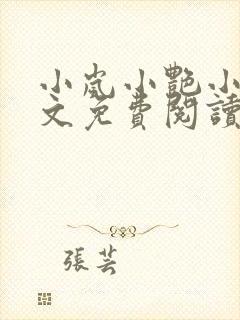 小嵐小艷小
文免費閱讀
張芸